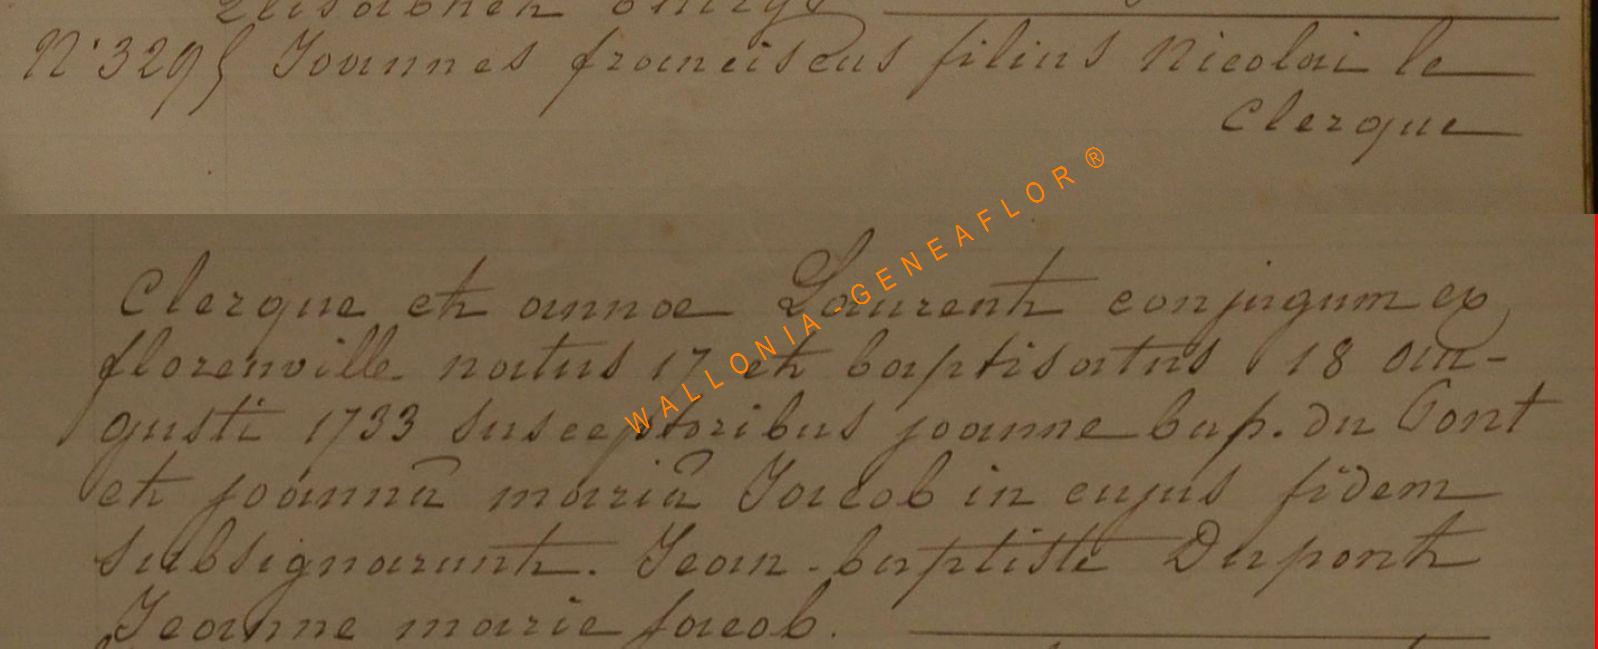 Elisabheth
N° 329 § Joannes franciscus filius Nicolai le
Clerque
Clerque eth annae Laurenth conjugum ex
florenville natus 17 eth baptisatus 18 au-
gusti 1733 susceptoribus joanne bap. du Pont
eth joannâ mariâ Jacob in cujus fidem
subsignarunth. Jean-baptiste Duponth
Jeanne marie jacob.
WALLONIA-GENEAFLOR®